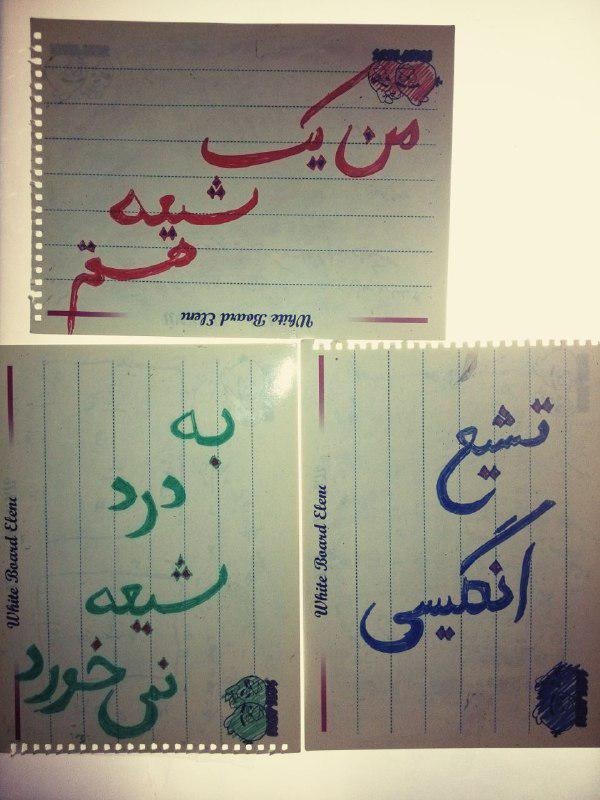 من یک
شیعه
هستم
White Board
تشیع
انگلیسی
White Board
به
درد
شیعه
نمی خورد
White Board